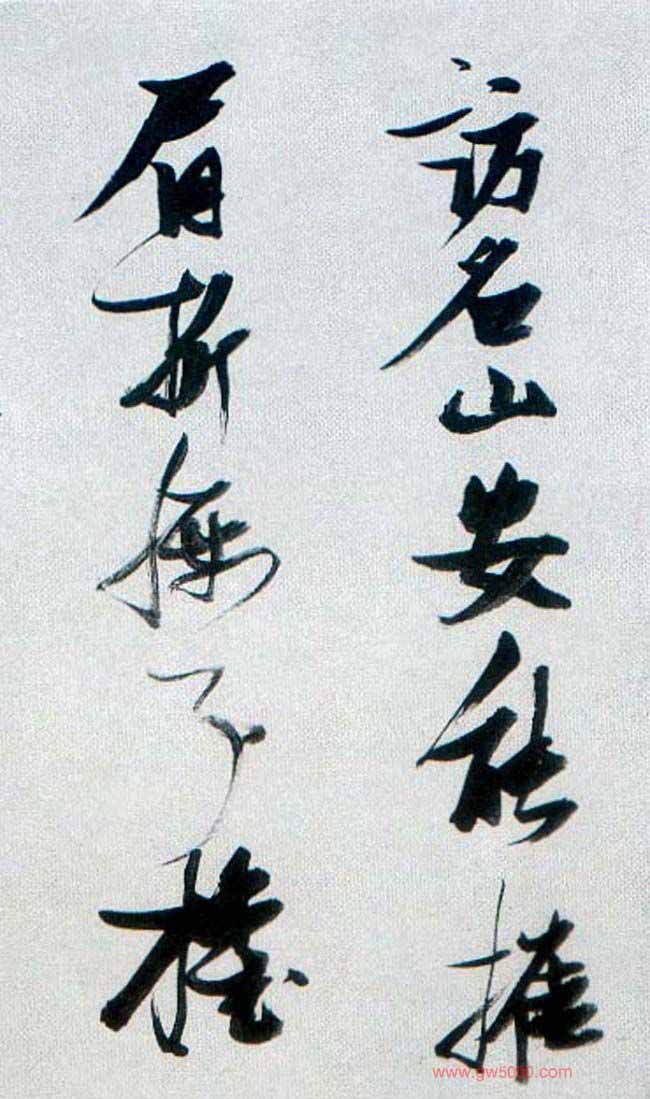 訪名山安能摧
眉折腰事權
www.gw5000.com